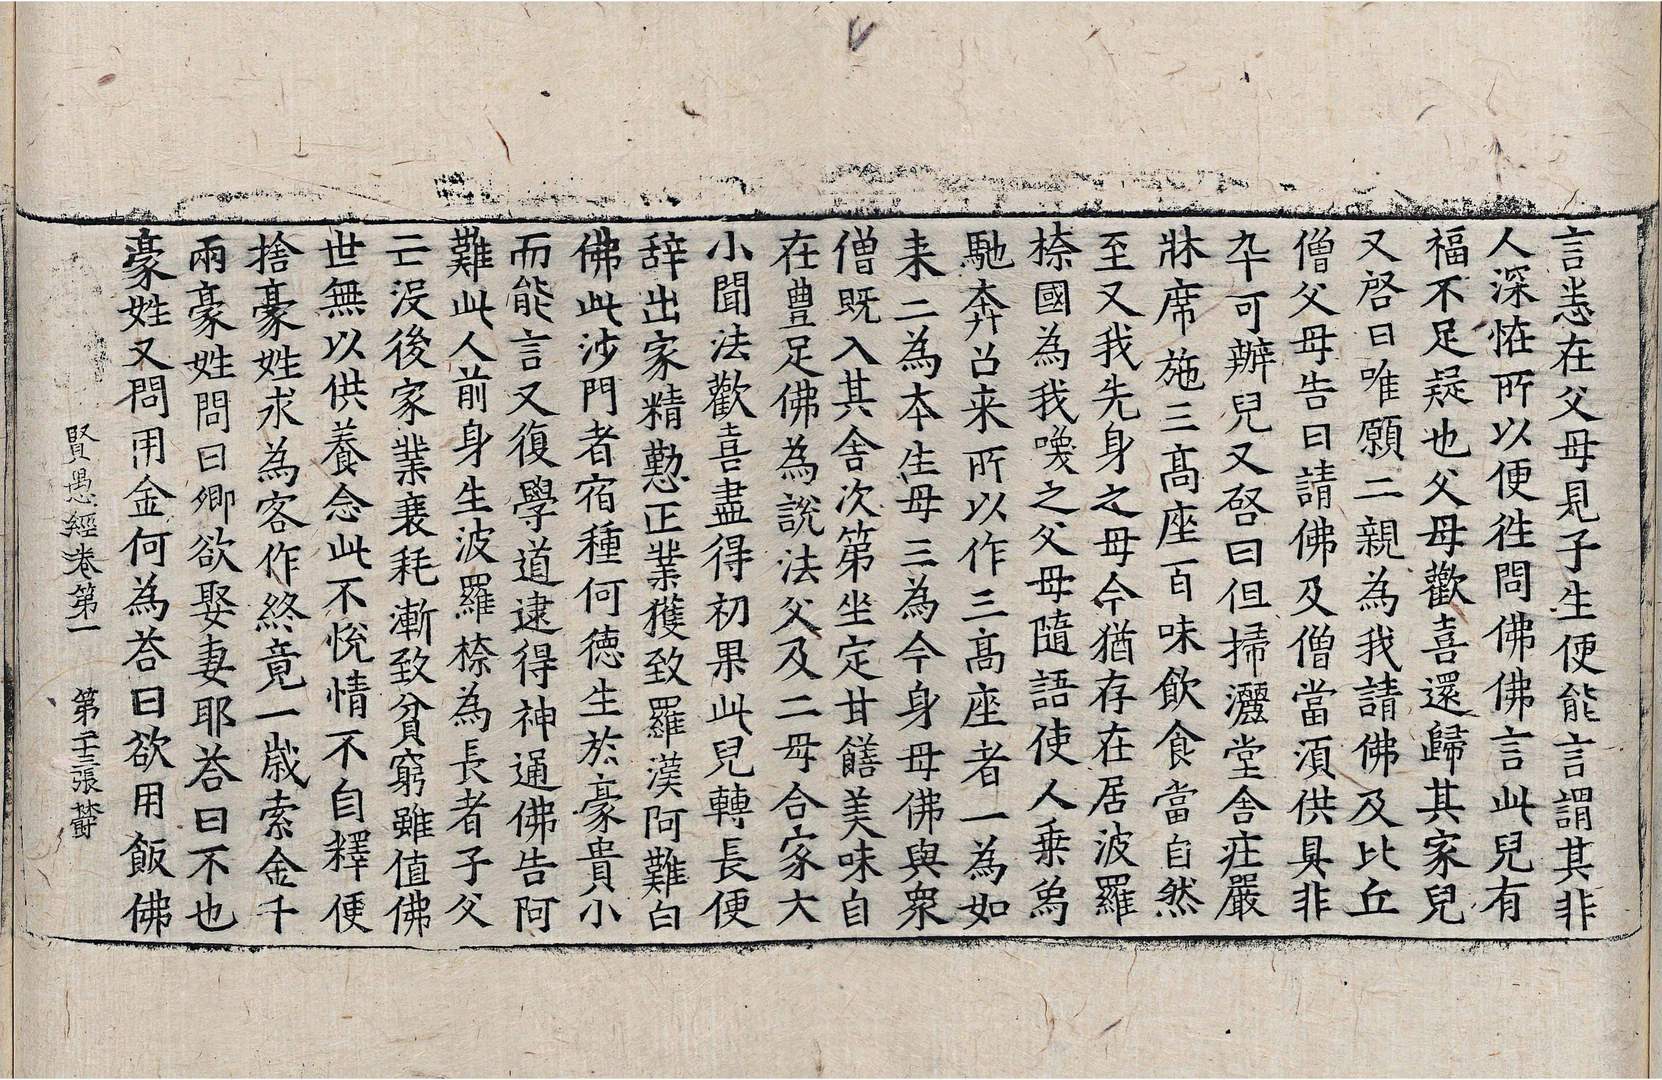 言恙在父母見子生便能言謂其非
人深恠所以便徃問佛佛言此兒有
福不足疑也父母歡喜還歸其家兒
又啓曰唯願二親為我請佛及比丘
僧父母告曰請佛及僧當須供具非
卒可辦兒又啓曰但掃灑堂舍庄嚴
牀席施三髙座百味飲食當自然
至又我先身之母今猶存在居波羅
㮈國為我喚之父母隨語使人乗象
馳奔召来所以作三髙座者一為如
来二為本生母三為今身母佛與衆
僧既入其舍次第坐定甘饍美味自
在豊足佛為說法父及二母合家大
小聞法歡喜盡得初果此兒轉長便
辞出家精懃正業獲致羅漢阿難白
佛此沙門者宿種何徳生於豪貴小
而能言又復學道逮得神通佛告阿
難此人前身生波羅㮈為長者子父
亡没後家業衰耗漸致貧窮雖值佛
世無以供養念此不悅情不自釋便
捨豪姓求為客作終竟一歳索金千
兩豪姓問曰卿欲娶妻耶荅曰不也
豪姓又問用金何為荅曰欲用飯佛
賢愚經卷第一　第二十三張　欝